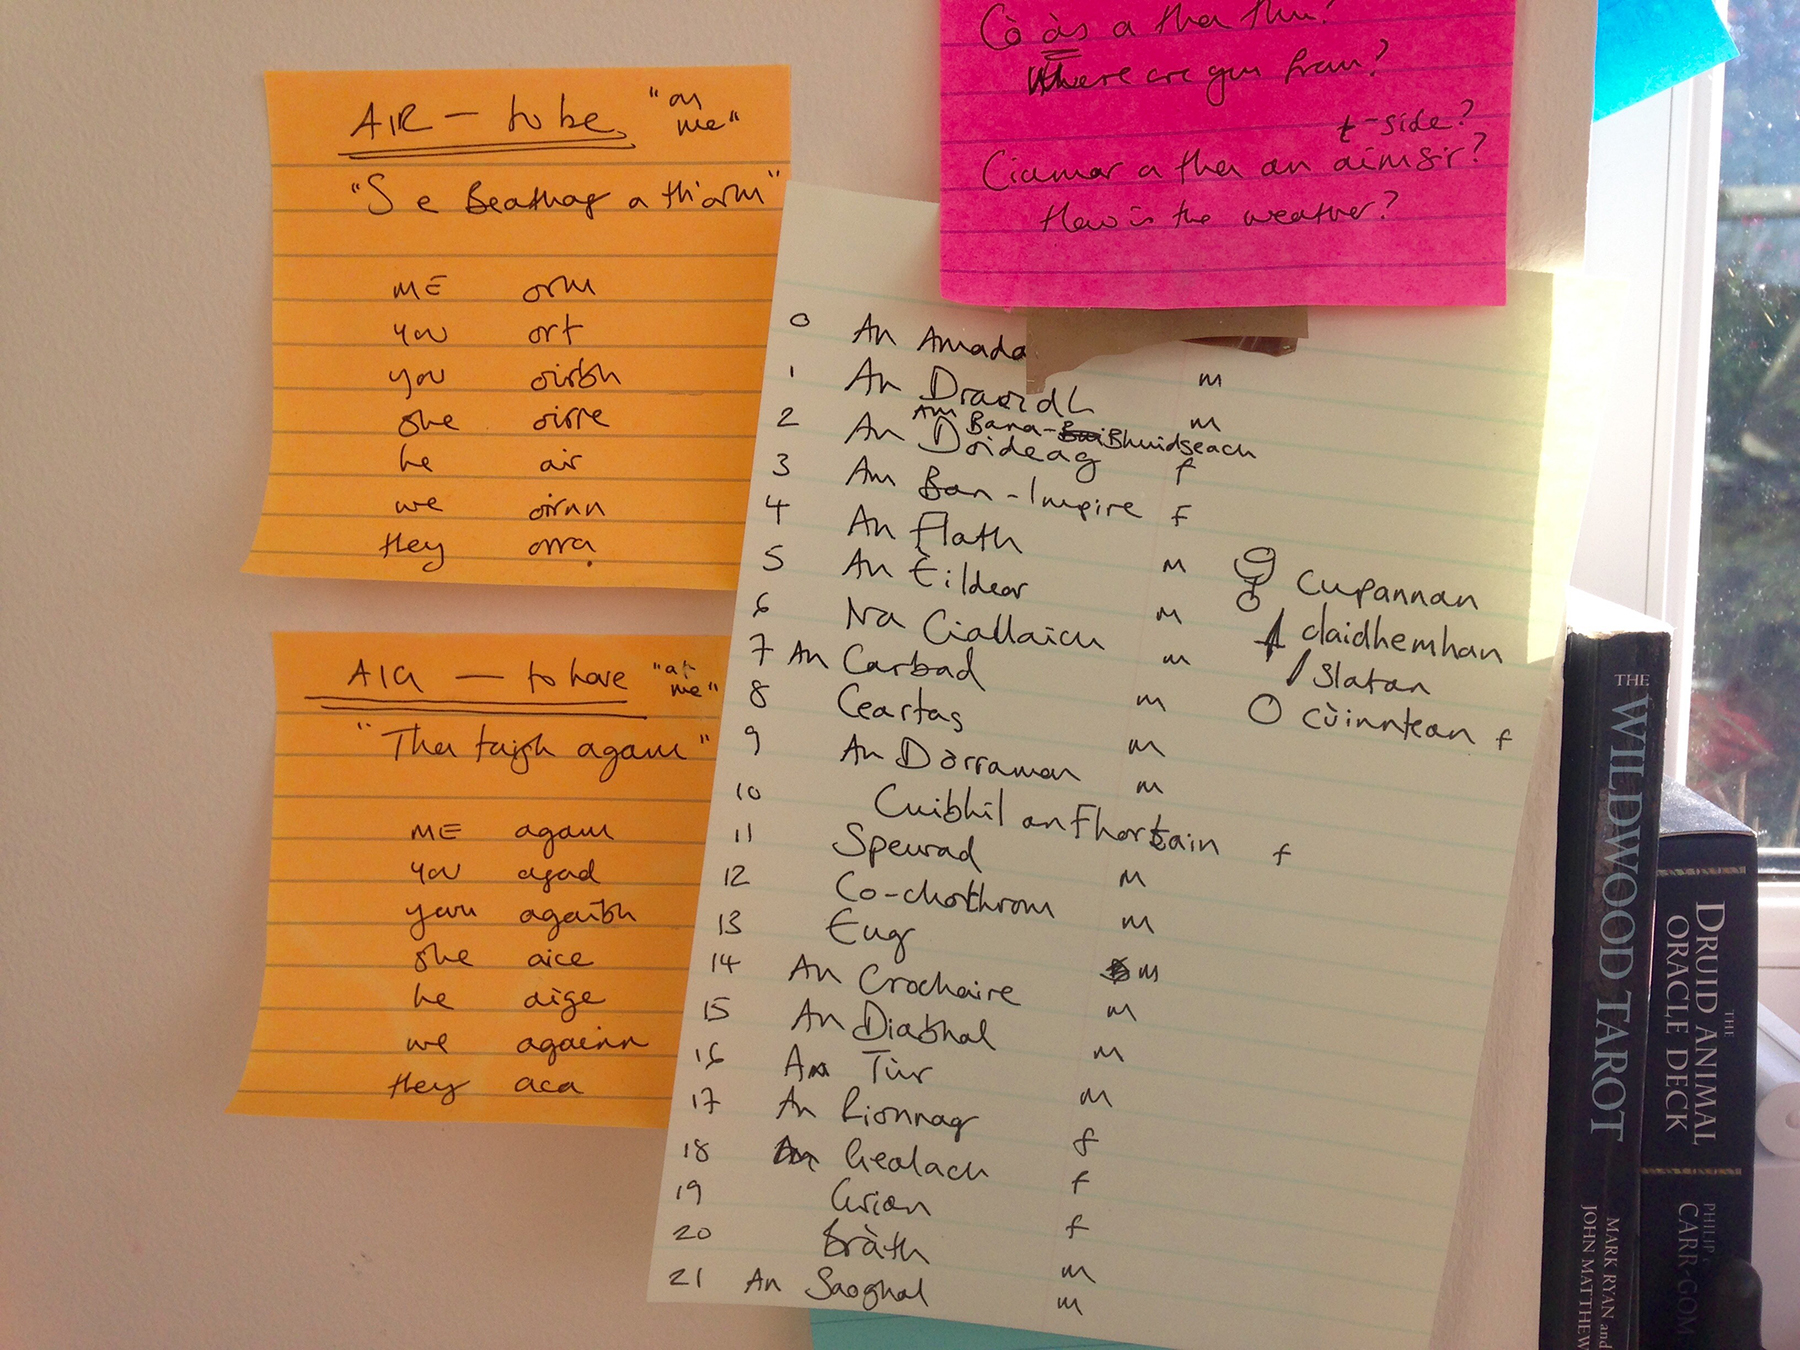 AIR — to be "on me"
"S e Beathag a th'orm"
ME orm
you ort
you oirbh
she oirre
he air
we oirnn
they orra
AIG — to have "at me"
"Tha taigh agam"
ME agam
you agad
you agaibh
she aice
he aige
we againn
they aca
Cò às a tha thu?
Where are you from?
t-side?
Ciamar a tha an aimsir?
How is the weather?
0 An Amada m
1 An Draoidh m
Am Bana-Bhuidseach
2 An Doideag f
3 Am Ban-Impire f
4 An Flath m
5 An Èildear m
6 Na Ciallaich m
7 An Carbad m
8 Ceartas m
9 An Dòrraman m
10 Cuibhil an Fhortain f
11 Speurad m
12 Co-chothrom m
13 Eug m
14 An Crochaire m
15 An Diabhal m
16 An Tùr m
17 An Rionnag f
18 An Gealach f
19 Grian f
20 Bràth m
21 An Saoghal m
cupannan
claidhemhan
slatan
cùinntean f
THE WILDWOOD TAROT
MARK RYAN and
JOHN MATTHEW
THE DRUID ANIMAL
ORACLE DECK
PHILIP
CARR-GOM